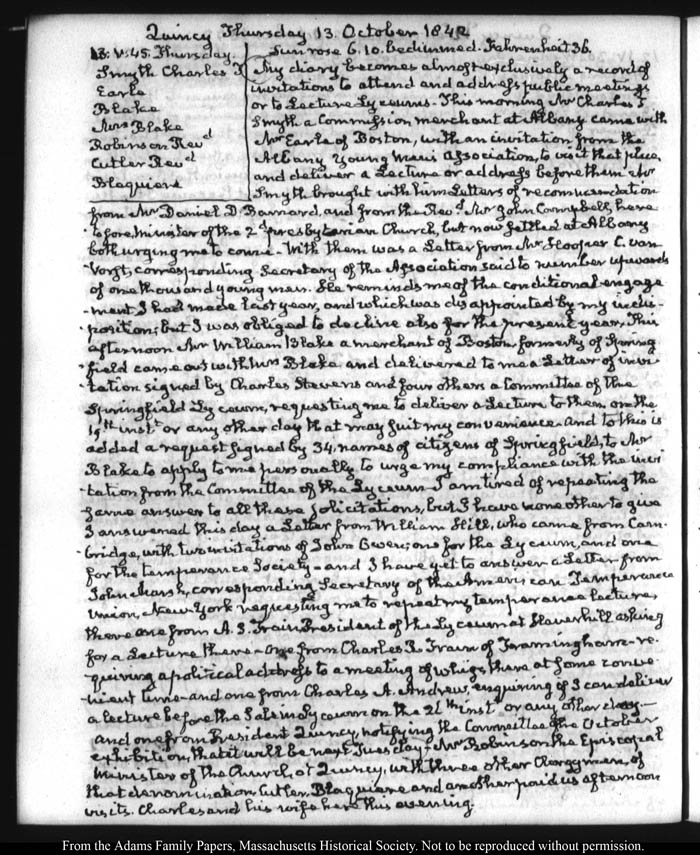 Quincy Thursday 13. October 1842
13. V:45. Thursday.
Smyth Charles T
Earle
Blake
Mrs Blake
Robinson Revd
Cutler Revd
Blaquiere
Sun rose 6.10. bedimmed. Fahrenheit 36.
My diary becomes almost exclusively a record of
invitations to attend and address public meetings
or to Lecture Lyceums. This morning Mr Charles T
Smyth a Commission merchant at Albany came with
Mr Earle of Boston, with an invitation from the
Albany Young Men's Association, to visit that place,
and deliver a Lecture or address before them Mr
Smyth brought with him Letters of recommendation
from Mr Daniel D. Barnard, and from the Revd Mr John Campbell, here
tofore, minister of the 2d presbyterian Church, but now settled at Albany
both urging me to come - With them was a Letter from Mr Hooper C. van
Vorst, corresponding Secretary of the Association said to number upwards
of one thousand young men. He reminds me of the conditional engage
-ment I had made last year, and which was disappointed by my indis-
position; but I was obliged to decline also for the present year. This
afternoon Mr William Blake a merchant of Boston formerly of Spring
field came out with Mrs Blake and delivered to me a Letter of invi
-tation signed by Charles Stevens and four others a Committee of the
Springfield Lyceum, requesting me to deliver a Lecture to them on the
19th inst or any other day that may suit my convenience. And to this is
added a request signed by 34 names of citizens of Springfield, to Mr
Blake to apply to me personally to urge my compliance with the invi
-tation from the Committee of the Lyceum I am tired of repeating the
same answer to all these solicitations, but I have none other to give
I answered this day a Letter from William Hill, who came from Cam
-bridge, with two invitations of John Owen; one for the Lyceum, and one
for the temperance Society - and I have yet to answer a Letter from
John Marsh, corresponding Secretary of the American Temperance
Union, New-York requesting me to repeat my temperance lecture,
there one from A. S. Train President of the Lyceum at Haverhill asking
for a Lecture there - One from Charles R. Train of Framingham re-
quiring a political address to a meeting of whigs there at some conve
nient time - and one from Charles A. Andrew, enquiring if I can deliver
a lecture before the Salem Lyceum on the 26th inst or any other day -
And one from President Quincy, notifying the Committee of the October
exhibition, that it will be next Tuesday - Mr Robinson the Episcopal
Minister of the Church, at Quincy, with three other Clergymen, of
that denomination Cutler, Blaquiere and another paid us afternoon
visits. Charles and his wife here this evening.
From the Adams Family Papers, Massachusetts Historical Society. Not to be reproduced without permission.